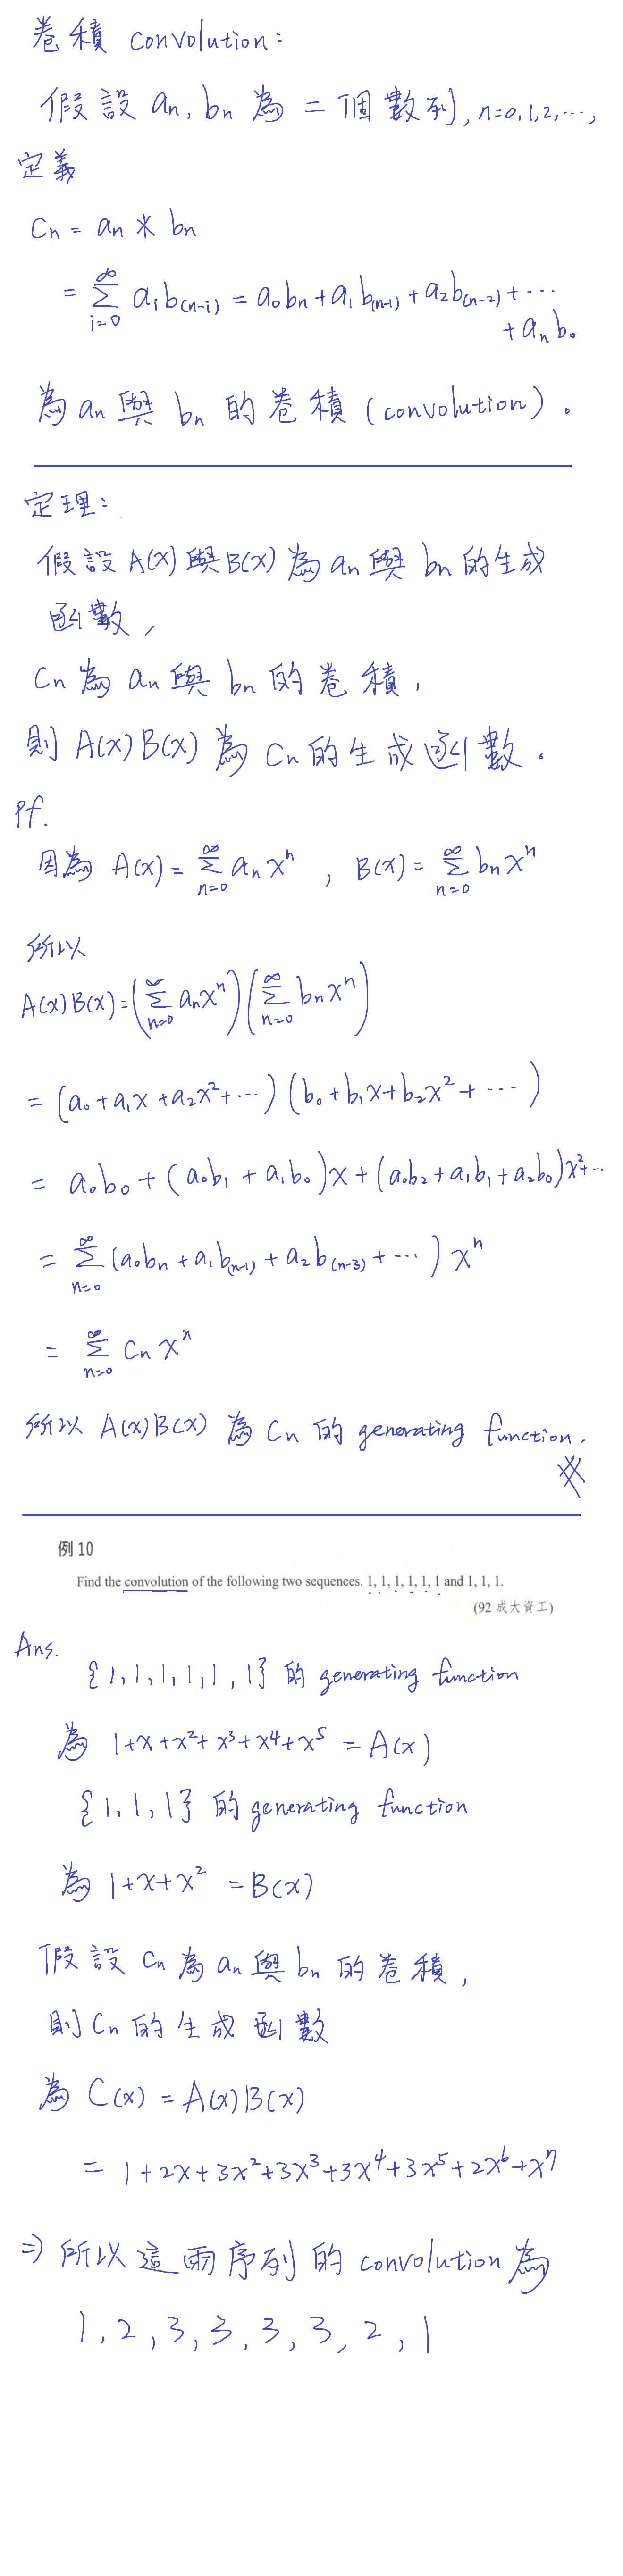 卷積 convolution:
假設 an, bn 為二個數列, n=0,1,2,…,
定義
Cn = an * bn
= ∑_{i=0}^{∞} ai b(n-i) = a0bn + a1b(n-1) + a2b(n-2) + …
+ an b0
為 an 與 bn 的卷積 (convolution)。
定理:
假設 A(x) 與 B(x) 為 an 與 bn 的生成
函數,
Cn 為 an 與 bn 的卷積,
則 A(x)B(x) 為 Cn 的生成函數。
pf.
因為 A(x) = ∑_{n=0}^{∞} an x^n , B(x) = ∑_{n=0}^{∞} bn x^n
所以
A(x)B(x) = (∑_{n=0}^{∞} an x^n)(∑_{n=0}^{∞} bn x^n)
= (a0 + a1x + a2x² + …)(b0 + b1x + b2x² + …)
= a0b0 + (a0b1 + a1b0)x + (a0b2 + a1b1 + a2b0)x² + …
= ∑_{n=0}^{∞} (a0bn + a1b(n-1) + a2b(n-3) + …) x^n
= ∑_{n=0}^{∞} Cn x^n
所以 A(x)B(x) 為 Cn 的 generating function.
#
例 10
Find the convolution of the following two sequences. 1, 1, 1, 1, 1, 1 and 1, 1, 1.
(92 成大資工)
Ans.
{1,1,1,1,1,1} 的 generating function
為 1+x+x²+x³+x⁴+x⁵ = A(x)
{1,1,1} 的 generating function
為 1+x+x² = B(x)
假設 Cn 為 an 與 bn 的卷積,
則 Cn 的生成函數
為 C(x) = A(x)B(x)
= 1+2x+3x²+3x³+3x⁴+3x⁵+2x⁶+x⁷
⇒ 所以這兩序列的 convolution 為
1, 2, 3, 3, 3, 3, 2, 1